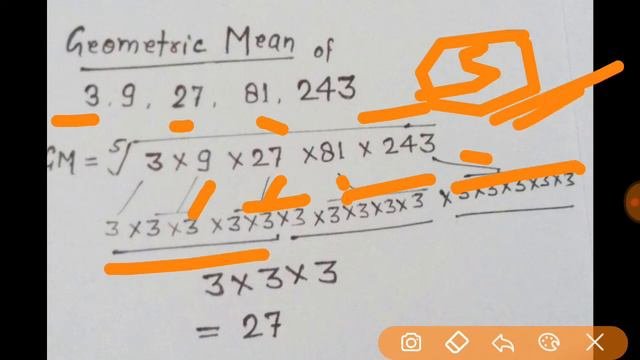 Geometric Mean of
3, 9, 27, 81, 243
5
GM = ⁵√3 × 9 × 27 × 81 × 243
3 × 3 × 3 × 3 × 3 × 3 × 3 × 3 × 3 × 3 × 3 × 3 × 3 × 3 × 3
3 × 3 × 3
= 27